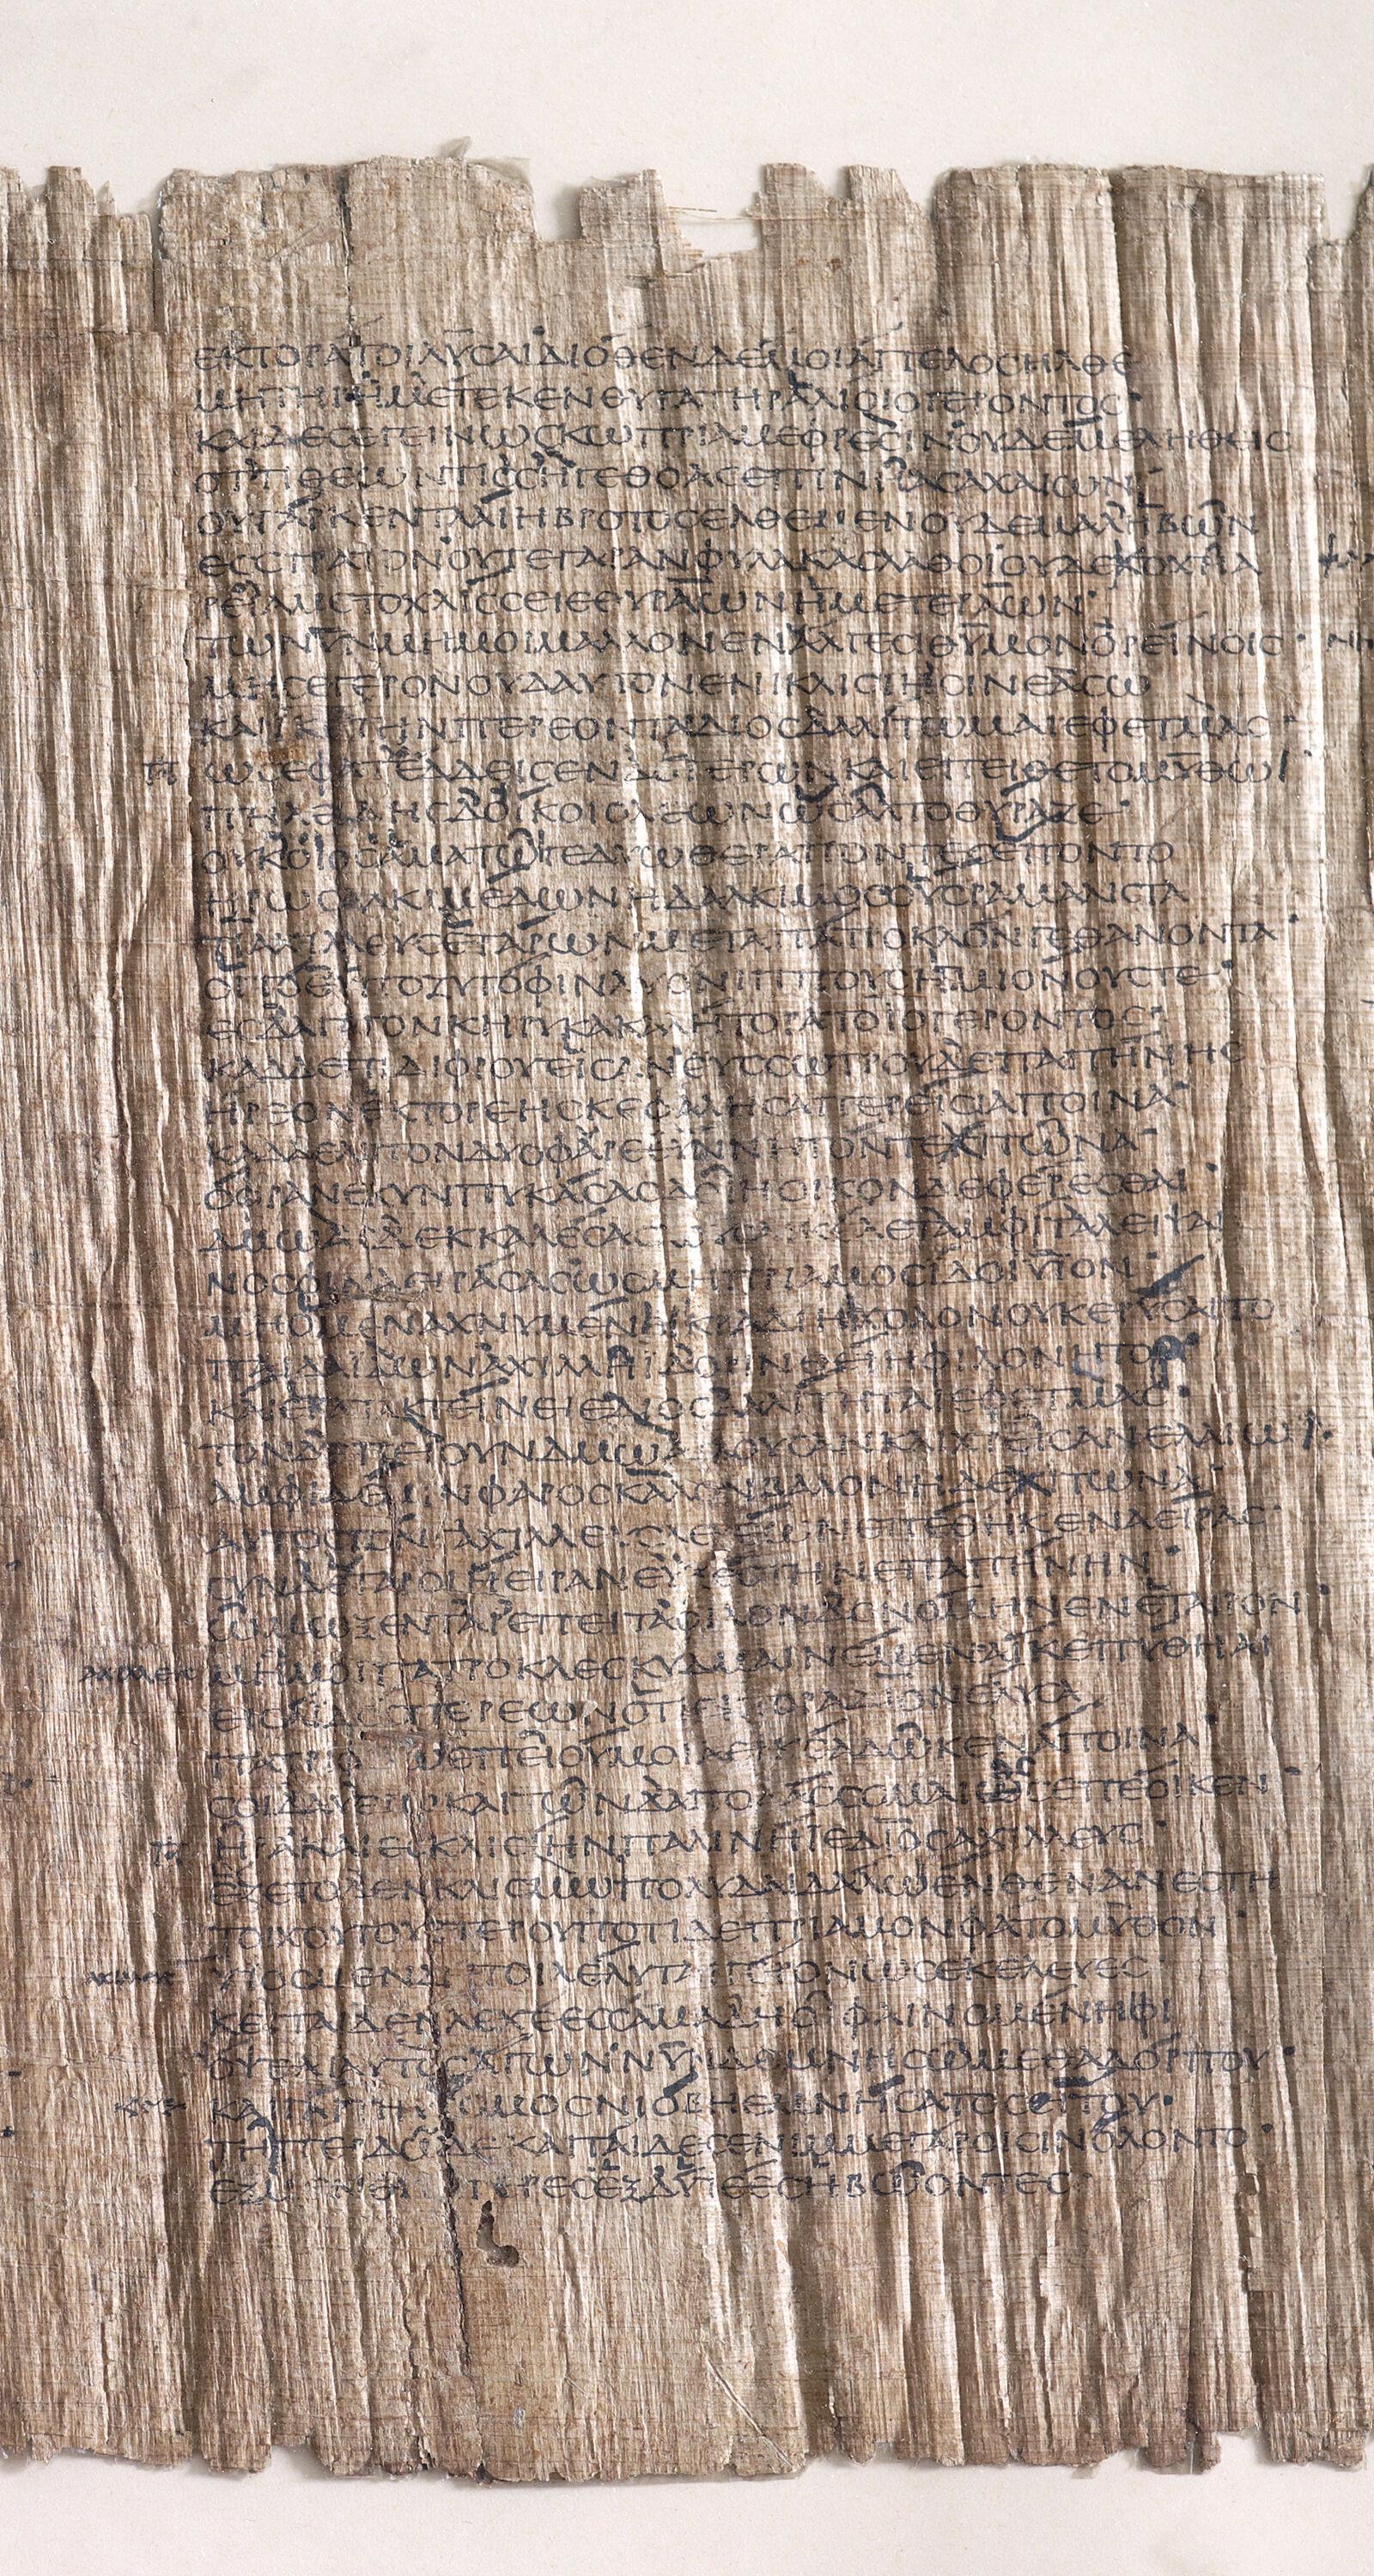 ΕΚΤΟΡΑΤΟΙΛΥϹΑΙΔΙΟΘΕΝΔΕΜΟΙΑΓΓΕΛΟϹΗΛΘΕ
ΜΗΤΗΡΗΜΕΤΕΚΕΝΘΥΓΑΤΗΡΑΛΙΟΙΟΓΕΡΟΝΤΟϹ
ΚΑΙΔΕϹΕΓΕΙΝΩϹΚΩΠΡΙΑΜΕΦΡΕϹΙΝΟΥΔΕΜΕΛΗΘΕΙϹ
ΟΤΤΙΘΕΩΝΤΙϹϹΗΓΕΘΟΑϹΕΠΙΝΗΑϹΑΧΑΙΩΝ
ΟΥΓΑΡΚΕΝΤΛΑΙΗΒΡΟΤΟϹΕΛΘΕΜΕΝΟΥΔΕΜΑΛΗΒΩΝ
ΕϹϹΤΡΑΤΟΝΟΥΤΕΓΑΡΑΝΦΥΛΑΚΑϹΛΑΘΟΙΟΥΔΕΚΟΧΗΑ
ΡΕΙΑΜΕΤΟΧΛΙϹϹΕΙΕΘΥΡΑΩΝΗΜΕΤΕΡΑΩΝ
ΤΩΝΥΝΜΗΜΟΙΜΑΛΛΟΝΕΝΑΛΓΕϹΙΘΥΜΟΝΟΡΕΙΝΟΙϹ
ΜΗϹΕΓΕΡΟΝΟΥΔΑΥΤΟΝΕΝΙΚΛΙϹΙΗϹΙΝΕΑϹΩ
ΚΑΙΙΚΕΤΗΝΠΕΡΕΟΝΤΑΔΙΟϹΔΑΛΙΤΩΜΑΙΕΦΕΤΜΑϹ
ΩϹΕΦΑΤΕΔΔΕΙϹΕΝΔΟΓΕΡΩΝΚΑΙΕΠΕΙΘΕΤΟΜΥΘΩΙ
ΠΗΛΕΙΔΗϹΔΟΙΚΟΙΟΛΕΩΝΩϹΑΛΤΟΘΥΡΑΖΕ
ΟΥΚΟΙΟϹΑΜΑΤΩΙΓΕΔΥΩΘΕΡΑΠΟΝΤΕϹΕΠΟΝΤΟ
ΗΡΩϹΑΛΚΙΜΕΔΩΝΗΔΑΛΚΙΜΟϹΟΥϹΡΑΜΑΛΙϹΤΑ
ΤΙΑΧΙΛΕΥϹΕΤΑΡΩΝΜΕΤΑΠΑΤΡΟΚΛΟΝΓΕΘΑΝΟΝΤΑ
ΟΙΤΟΘΥΠΟΖΥΓΟΦΙΝΛΥΟΝΙΠΠΟΥϹΗΜΙΟΝΟΥϹΤΕ
ΕϹΔΑΓΑΓΟΝΚΗΡΥΚΑΚΑΛΗΤΟΡΑΤΟΙΟΓΕΡΟΝΤΟϹ
ΚΑΔΔΕΠΙΔΙΦΡΟΥΕΙϹΑΝΕΥϹϹΩΤΡΟΥΔΕΠΑΠΗΝΗϹ
ΗΡΕΟΝΕΚΤΟΡΕΗϹΚΕΦΑΛΗϹΑΠΕΡΕΙϹΙΑΠΟΙΝΑ
ΚΑΔΔΕΛΙΠΟΝΔΥΟΦΑΡΕΕΥΝΝΗΤΟΝΤΕΧΙΤΩΝΑ
ΟΦΡΑΝΕΚΥΝΠΥΚΑϹΑϹΔΟΙΗΟΙΚΟΝΔΕΦΕΡΕϹΘΑΙ
ΔΜΩΑϹΔΕΚΚΑΛΕϹΑϹΛΟΥϹΑΙΚΕΛΕΤΑΜΦΙΤΑΛΕΙΨΑΙ
ΝΟϹΦΙΝΑΕΙΡΑϹΑϹΩϹΜΗΠΡΙΑΜΟϹΙΔΟΙΥΙΟΝ
ΜΗΟΜΕΝΑΧΝΥΜΕΝΗΙΚΡΑΔΙΗΙΧΟΛΟΝΟΥΚΕΡΥϹΑΙΤΟ
ΠΑΙΔΑΙΔΩΝΑΧΙΛΗΙΔΟΡΙΝΘΕΙΗΦΙΛΟΝΗΤΟΡ
ΚΑΙΕΚΑΤΑΚΤΕΙΝΕΙΕΔΙΟϹΔΑΛΙΤΗΤΑΙΕΦΕΤΜΑϹ
ΤΟΝΔΕΠΕΙΟΥΝΔΜΩΑΙΛΟΥϹΑΝΚΑΙΧΡΕΙϹΑΝΕΛΑΙΩΙ
ΑΜΦΙΔΕΜΙΝΦΑΡΟϹΚΑΛΟΝΒΑΛΟΝΗΔΕΧΙΤΩΝΑ
ΑΥΤΟϹΤΟΝΓΑΧΙΛΛΕΥϹΛΕΧΕΩΝΕΠΕΘΗΚΕΝΑΕΙΡΑϹ
ϹΥΝΔΕΤΑΡΟΙΗΕΙΡΑΝΕΥΞΕϹΤΗΝΕΠΑΠΗΝΗΝ
ΩΙΜΩΞΕΝΤΑΡΕΠΕΙΤΑΦΙΛΟΝΔΟΝΟΜΗΝΕΝΕΤΑΙΡΟΝ
ΜΗΜΟΙΠΑΤΡΟΚΛΕϹΚΥΔΜΑΙΝΕΜΕΝΑΙΚΕΠΥΘΗΑΙ
ΕΙΝΑΙΔΟϹΠΕΡΕΩΝΟΤΙΕΚΤΟΡΑΔΙΟΝΕΛΥϹΑ
ΠΑΤΡΙΦΙΛΩΕΠΕΙΟΥΜΟΙΑΕΙΚΕΑΔΩΚΕΝΑΠΟΙΝΑ
ϹΟΙΔΑΥΕΓΩΚΑΙΤΩΝΔΑΠΟΔΑϹϹΟΜΑΙΟϹϹΕΠΕΟΙΚΕΝ
ΗΡΑΚΑΙΕϹΚΛΙϹΙΗΝΠΑΛΙΝΗΙΕΔΙΟϹΑΧΙΛΛΕΥϹ
ΕΖΕΤΟΔΕΝΚΛΙϹΜΩΠΟΛΥΔΑΙΔΑΛΩΕΝΘΕΝΑΝΕϹΤΗ
ΤΟΙΧΟΥΤΟΥΕΤΕΡΟΥΠΟΤΙΔΕΠΡΙΑΜΟΝΦΑΤΟΜΥΘΟΝ
ΥΙΟϹΜΕΝΔΗΤΟΙΛΕΛΥΤΑΙΓΕΡΟΝΩϹΕΚΕΛΕΥΕϹ
ΚΕΙΤΑΙΔΕΝΛΕΧΕΕϹϹΑΜΑΔΗΟΙΦΑΙΝΟΜΕΝΗΦΙ
ΟΨΕΑΙΑΥΤΟϹΑΓΩΝΝΥΝΔΕΜΝΗϹΩΜΕΘΑΔΟΡΠΟΥ
ΚΑΙΓΑΡΤΗΥΚΟΜΟϹΝΙΟΒΗΕΜΝΗϹΑΤΟϹΕΙΤΟΥ
ΤΗΠΕΡΔΩΔΕΚΑΠΑΙΔΕϹΕΝΙΜΜΕΓΑΡΟΙϹΙΝΟΛΟΝΤΟ
ΕΞΜΕΝΘΥΓΑΤΕΡΕϹΕΞΔΥΙΕΕϹΗΒΩΟΝΤΕϹ